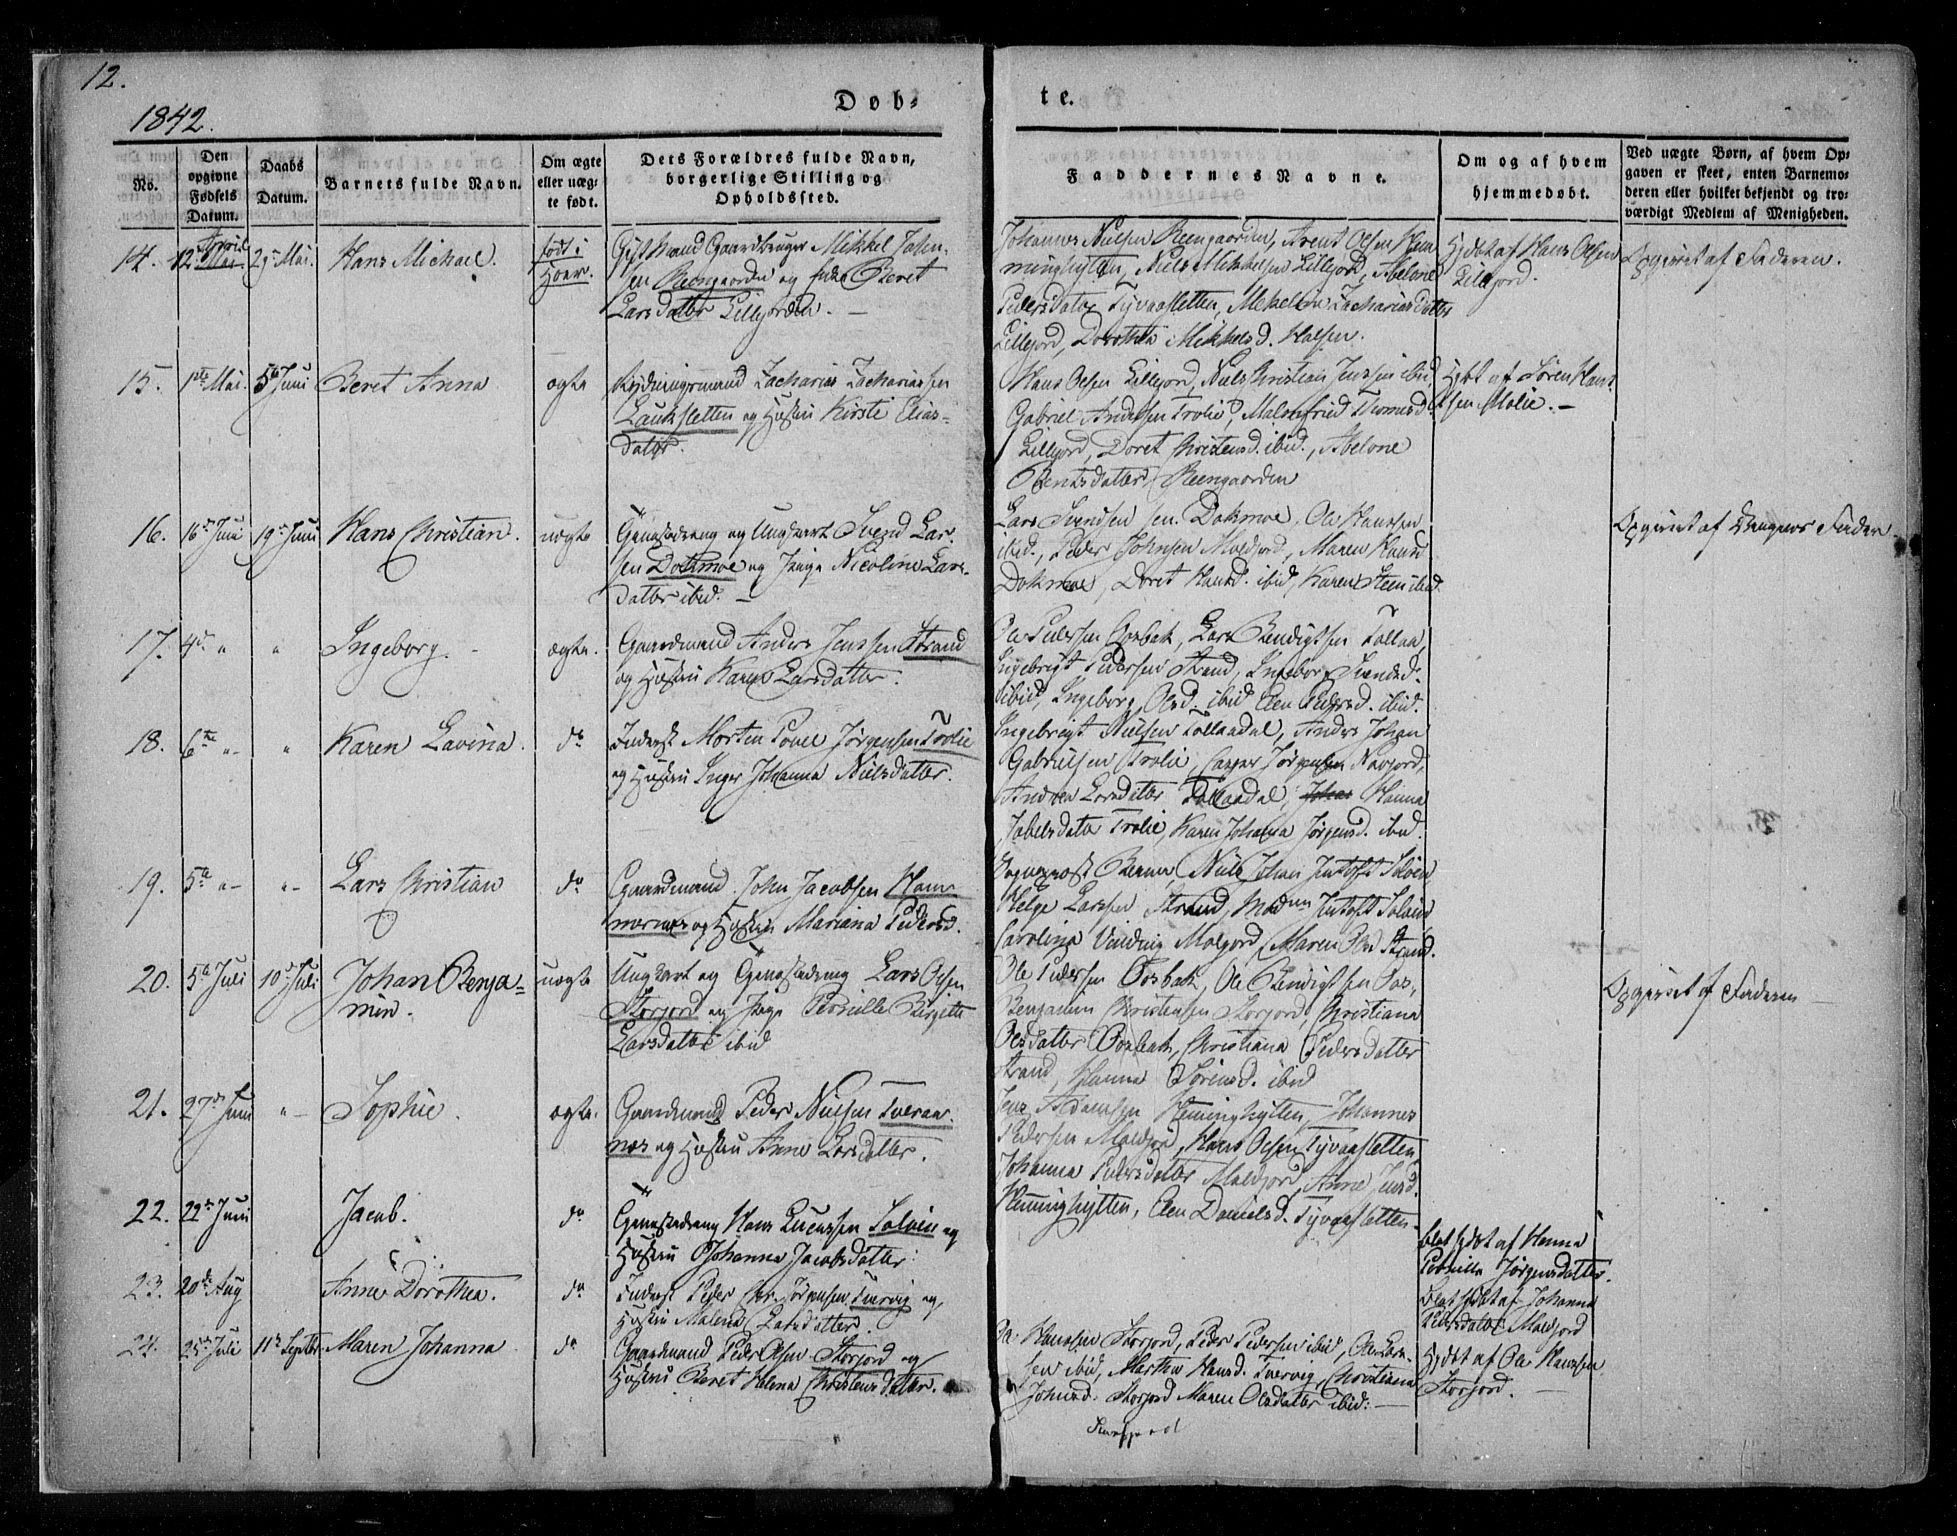 12.
1842.
Døb-
te.
No.
Den opgivne Fødsels Datum.
Daabs Datum.
Barnets fulde Navn.
Om ægte eller uæg-te født.
Dets Forældres fulde Navn, borgerlige Stilling og Opholdssted.
Faddernes Navne.
Om og af hvem hjemmedøbt.
Ved uægte Børn, af hvem Op-
gaven er skeet, enten Barnemo-
deren eller hvilket bekjendt og tro-
værdigt Medlem af Menigheden.
14. 12 April 29 Mai. Hans Michael. født i Hoer.
Gift Mand Gaardbruger Mikkel Johan-
sen Reengaarden og Beret
Larsdatter Lillejorden.
Johannes Nielsen Reengaarden, Arent Olsen Hem-
minghytten, Niels Mikkelsen Lillejord, Abelone
Pedersdatter Tyvaasletten, Zachariasdatter
Lillejord, Dorothea Mikkelsd. Halsen.
Hjdbt af Hans Olsen
Lillejord.
Opgivet af Faderen.
15. 1ste Mai. 5te Juni Beret Anna ægte
Rydningsmand Zacharias Zachariassen
Laukslætten og Hustru Kirsti Elias-
datter.
Hans Olsen Lillejord, Niels Christian Jenssen ibid,
Gabriel Andersen Trolie, Malenfrid Thomasd.
Lillejord, Doret Christensd. ibid., Abelone
Bentsdatter, Reengaarden
Hjdbt af Søren Hans-
sen Molie. -
16. 16de Juni 19de Juni Hans Christian. uægte
Gaardsdreng og Ungkarl Svend Lar-
sen Dokmoe og Pige Nicoline Lars-
datter ibid. -
Lars Svendsen sen. Dokmoe, Ole Hanssen
ibid., Peder Johnsen Moldjord, Maren Hansd.
Dokmoe, Doret Hansd. ibid, Karen Steen ibid
Opgivet af Faderen.
17. 4de " " Ingeborg. ægte.
Gaardmand Anders Jenssen Strand
og Hustru Karen Larsdatter.
Ole Pedersen Oosbak, Lars Bendigtsen Tollaa,
Ingebrigt Pedersen Strand, Ingeborg Svendsd.
ibid, Ingeborg Olsd. ibid Elen Pedersd. ibid.
18. 6te " " Karen Lavina. do
Inderst Morten Povel Jørgensen Trolie
og Hustru Inger Johanna Nielsdatter.
Ingebrigt Nielsen Tollaadal, Anders Johan
Gabrielsen Trolie, Casper Jørgensen Navjord,
Andrea Larsdatter Tollaadal, Hanna
Trolie, Karen Johanna Jørgensd. ibid.
19. 5te " " Lars Christian do
Gaardmand John Jacobsen Ham-
mernes og Hustru Mariana Pedersd.
Niels Johan Jentoft Solvien
Helge Larssen Strand, Madm Jentoft Solvien,
Carolina Moljord, Maren Olsd Strand.
20. 5te Juli 10de Juli Johan Benja-
min. uægte
Ungkarl og Gaardsdreng Lars Olsen
Storjord og Pige Pernille Birgitte
Larsdatter ibid
Ole Pedersen Oosbak, Ole Bendigtsen Oos,
Benjamin Christensen Storjord, Christiana
Olsdatter Oosbak, Christiana Pedersdatter
Strand, Hanna Sørensd. ibid
Opgivet af Faderen
21. 27de Juni " Sophie. ægte.
Gaardmand Peder Nielsen Tveraa-
næs og Hustru Anne Larsdatter.
Jens Adamsen Hemminghytten, Johannes
Pedersen Moldjord, Hans Olsen Tyvaasletten
Johanna Pedersdatter Moldjord, Anne Jensd.
Hemminghytten, Elen Danielsd. Tyvaasletten.
22. 22de Juni Jacob. do
Gaardsdreng Hans Lucassen Solvien og
Hustru Johanna Jacobsdatter.
blot hjdbt af Hanna
Pernilla Jørgensdatter.
23. 20de Aug Anne Dorothea. do
Inderst Peder Jørgensen Tvervig og
Hustru Malena Larsdatter.
Blot hjdbt af Johanna
Pedersdatter Moldjord
24. 25de Juli 11te Septbr. Maren Johanna do
Gaardmand Peder Olsen Storjord og
Hustru Beret Helena Christensdatter.
Ole Hanssen Storjord, Peder Pedersen ibid, Ole Lars-
sen ibid, Martha Hansd. Tvervig, Christiana
Johnsd. Storjord Maren Olsdatter ibid. -
Hjdbt af Ole Hanssen
Storjord.